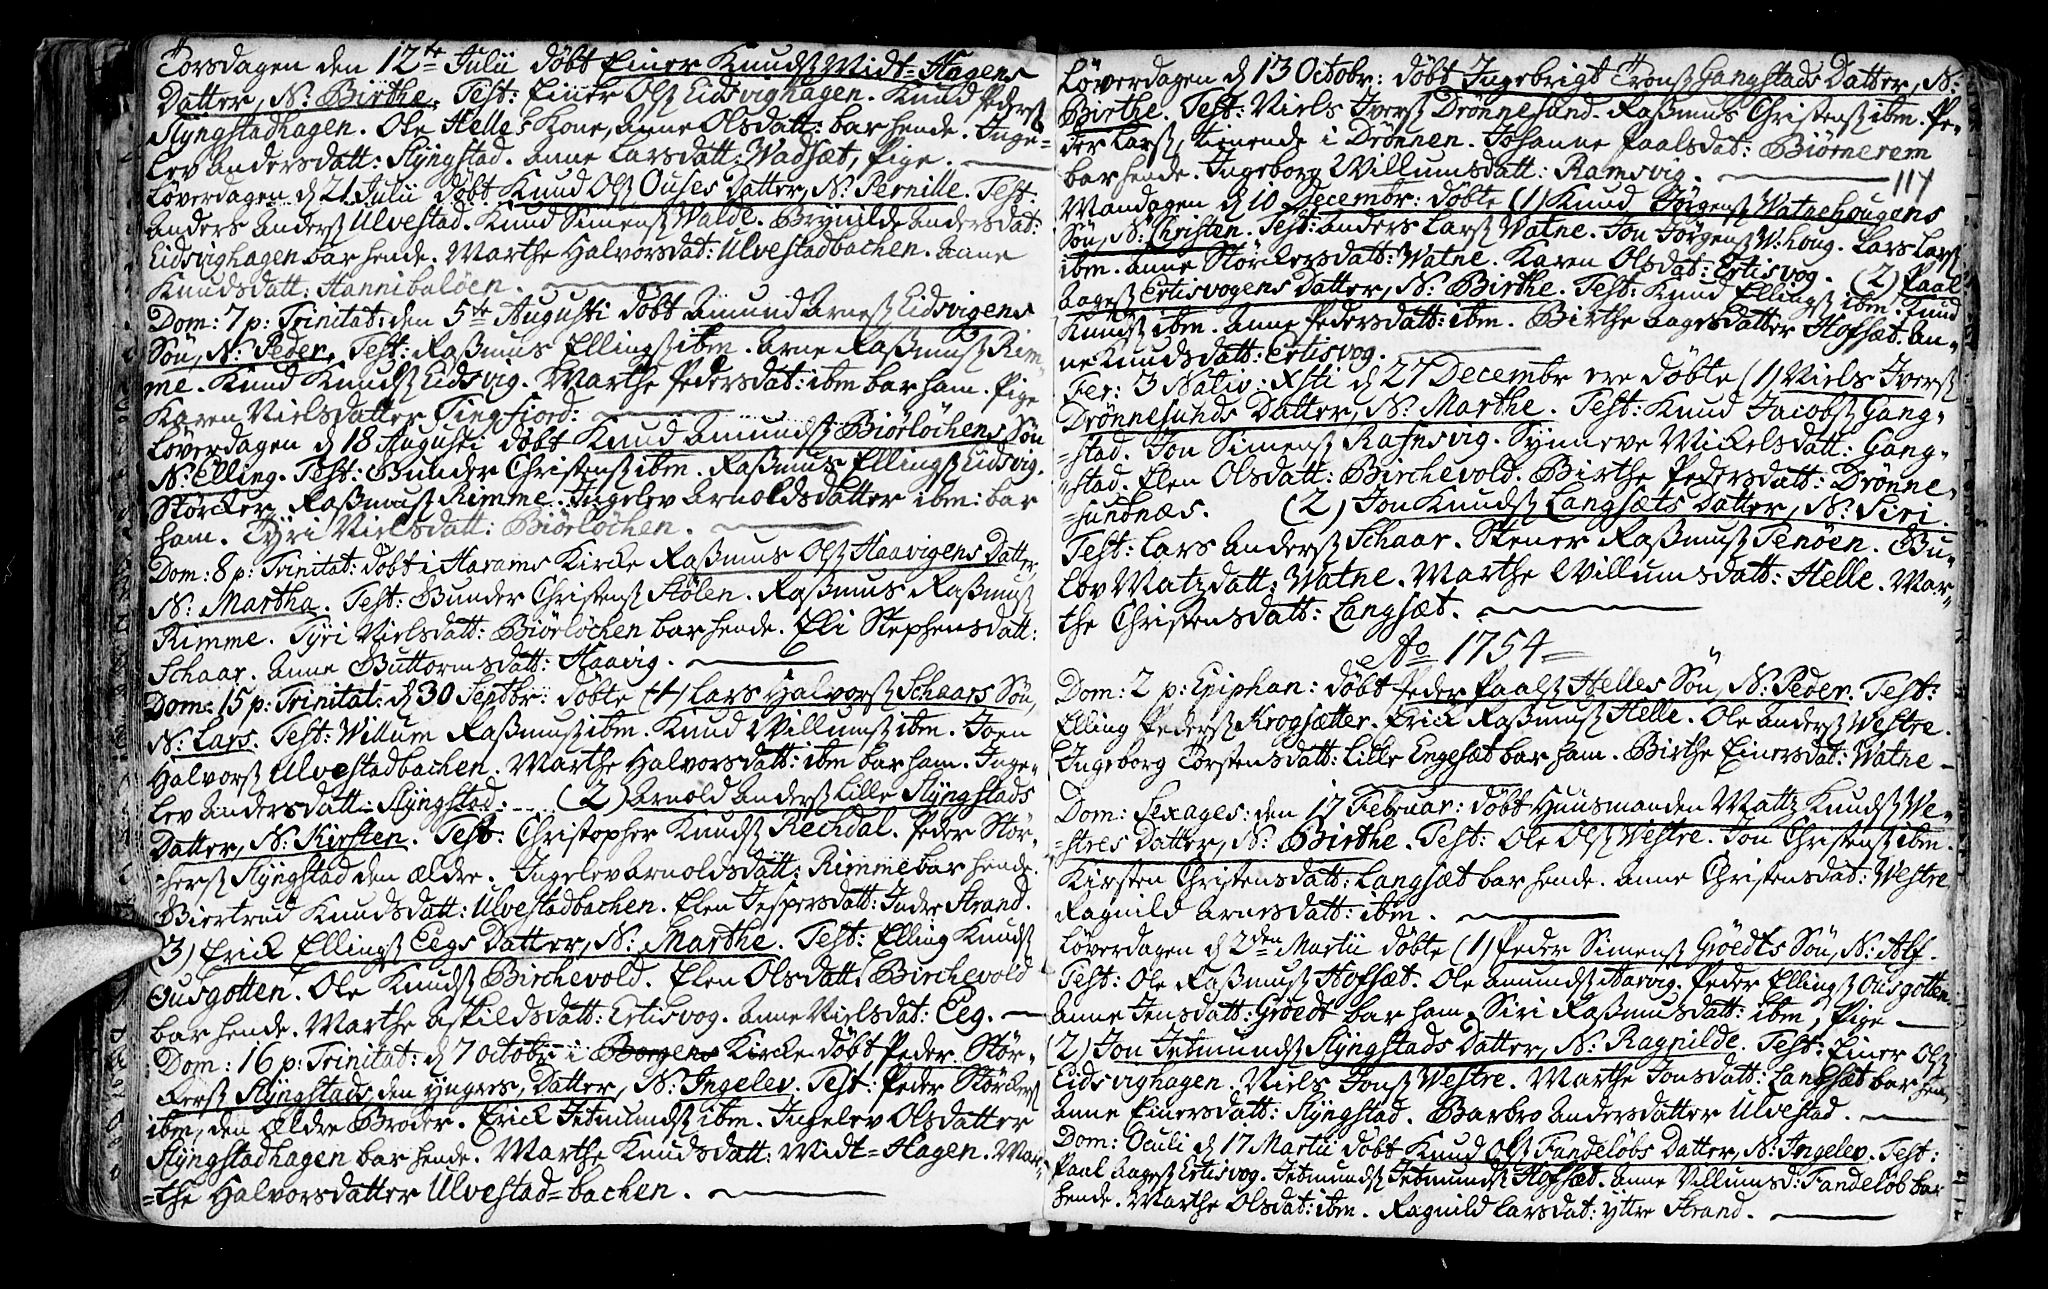 Torsdagen den 12te Julii døbt Einer Knudsß Midt=Hagens
Datter, N: Birthe. Test: Einer Olsß Eidsvighagen. Knud Pedersß
Slyngstadhagen. Ole Helles Kone, Anne Olsdatt: bar hende. Inge-
lev Andersdatt: Slyngstad. Anne Larsdatt: Wadsæt, Pige.
Løverdagen d 21 Julii døbt Knud Olsß Ouses Datter, N: Pernille. Test:
Anders Andersß Ulvestad. Knud Simensß Walde. Brynilde Andersdat:
Eidsvighagen bar hende. Marthe Halvorsdat: Ulvestadbachen. Anne
Knudsdatt: Hannibaløen.
Dom: 7 p: Trinitat: den 5te Augusti døbt Amund Arnesß Eidsvigens
Søn, N: Peder. Test: Rasmus Ellingsß ibm. Arne Rasmusß Rim-
me. Knud Knudsß Eidsvig. Marthe Pedersdat: ibm bar ham. Pige
Karen Nielsdatter Tingfiord:
Løverdagen d 18 Augusti døbt Knud Amundsß Biørløchens Søn
N: Elling. Test: Gunder Christensß ibm. Rasmus Ellingsß Eidsvig.
Størcker Rasmusß Rimme. Ingelev Arnoldsdatter ibm: bar
ham. Tyri Nielsdatt: Biørløchen.
Dom: 8 p: Trinitat: døbt i Harams Kircke Rasmus Olsß Haavigens Datter
N: Martha. Test: Gunder Christensß Hølen. Rasmus Rasmusß
Rimme. Tyri Nielsdatt: Biørløchen bar hende. Eli Stephensdatt:
Schaar. Anne Guttormsdatt: Haavig.
Dom: 15 p: Trinitat: d 30 Septbr: døbte (1) Lars Halvorsß Schaars Søn,
N: Lars. Test: Willum Rasmusß ibm. Knud Willumsß ibm. Joen
Halvorsß Ulvestadbachen. Marthe Halvorsdatt: ibm bar ham. Inge-
lev Andersdatt: Slyngstad. (2) Arnold Andersß Lille Slyngstads
Datter, N: Kirsten. Test: Christopher Knudsß Rechdal. Peder Stør-
kersß Slyngstad den ældre. Ingelev Arnoldsdatt: Rimme bar hende.
Biertrud Knudsdatt: Ulvestadbachen. Elen Jespersdatt: Indre Strand.
(3) Erick Ellingsß Eegs Datter, N: Marthe. Test: Elling Knudsß
Ousgotten. Ole Knudsß Birchevold. Elen Olsdatt: Birchevold
bar hende. Marthe Askildsdatt: Ertisvog. Anne Nielsdat: Eeg.
Dom: 16 p: Trinitat: d 7 Octobr i Borgens Kircke døbt Peder Stør-
kersß Slyngstads den yngres, Datter, N: Ingelev. Test: Peder Størckersß
ibm, den ældre Broder. Erick Jetmundsß ibm. Ingelev Olsdatter
Slyngstadhagen bar hende. Marthe Knudsdatt: Midt=Hagen. Mar-
=the Halvorsdatter Ulvestad=bachen.
Løverdagen d 13 Octobr: døbt Ingebrigt Tronsß Gangstads Datter, N:
Birthe. Test: Niels Iversß Drønnesund. Rasmus Christensß ibm. Pe-
der Larsß, tienende i Drønnen. Johanne Paalsdat: Biørnerem
bar hende. Ingeborg Willumsdatt: Ramsvig.
117
Mandagen d 10 Decembr: døbte (1) Knud Jørgensß Watnehougens
Søn, N: Christen. Test: Anders Larsß Watne. Jon Jørgensß W:houg. Lars Larsß
ibm. Anne Størckersdatt: Watne. Karen Olsdat: Ertisvog. (2) Paal
Aagesß Ertisvogens Datter, N: Birthe. Test: Knud Ellingsß ibm. Knud
Knudsß ibm. Anne Pedersdatt: ibm. Birthe Aagesdatter Hofsæt. An-
ne Knudsdatt: Ertisvog.
Fer: 3 Nativ: Xsti d 27 Decembr ere døbte (1) Niels Iversß
Drønnesunds Datter, N: Marthe. Test: Knud Jacobsß Gang-
=stad. Jon Simensß Rafnsvig. Synneve Mickelsdatt: Gang-
=stad. Elen Olsdatt: Birchevold. Birthe Pedersdatt: Drønne-
=sundnæs. (2) Jon Knudsß Langsæts Datter, N: Siri.
Test: Lars Andersß Schaar. Stener Rasmusß Tenøen. Gu-
lov Matzdatt: Watne. Marthe Willumsdatt: Helle. Mar-
the Christensdatt: Langsæt.
Ao 1754
Dom: 2 p: Epiphan: døbt Peder Paalsß Helles Søn, N: Peder. Test:
Elling Pedersß Krogsætter. Erick Rasmusß Helle. Ole Andersß Westre.
Ingeborg Torstensdatt: Lille Engesæt bar ham. Birthe Einersdat: Watne
Dom: Sexages: den 17 Februar: døbt Huusmanden Mattz Knudsß We-
=stres Datter, N: Birthe. Test: Ole Olsß Westre. Jon Christensß ibm.
Kirsten Christensdatt: Langsæt bar hende. Anne Christensdat: Westre
Ragnild Arnesdatt: ibm.
Løverdagen d 2den Martii døbte (1) Peder Simensß Grøedts Søn, N: Alf.
Test: Ole Rasmusß Hofsæt. Ole Amundsß Haavig. Peder Ellingsß Ousgotten.
Anne Jensdatt: Grøedt bar ham. Siri Rasmusdatt: ibm, Pige
(2) Jon Jetmundsß Slyngstads Datter, N: Ragnilde. Test: Einer Olsß
Eidsvighagen. Niels Jonsß Westre. Marthe Jonsdatt: Langsæt bar hende
Anne Einersdatt: Slyngstad. Barbro Andersdatter Ulvestad.
Dom: Oculi d 17 Martii døbt Knud Olsß Fandeløbs Datter, N: Ingelev. Test:
Paal Aagesß Ertisvog. Jetmundsß Jetmundsß Hofsæt. Anne Villumsd: Fandeløb bar
hende. Marthe Olsdat: ibm. Ragnild Larsdat: yttre Strand.